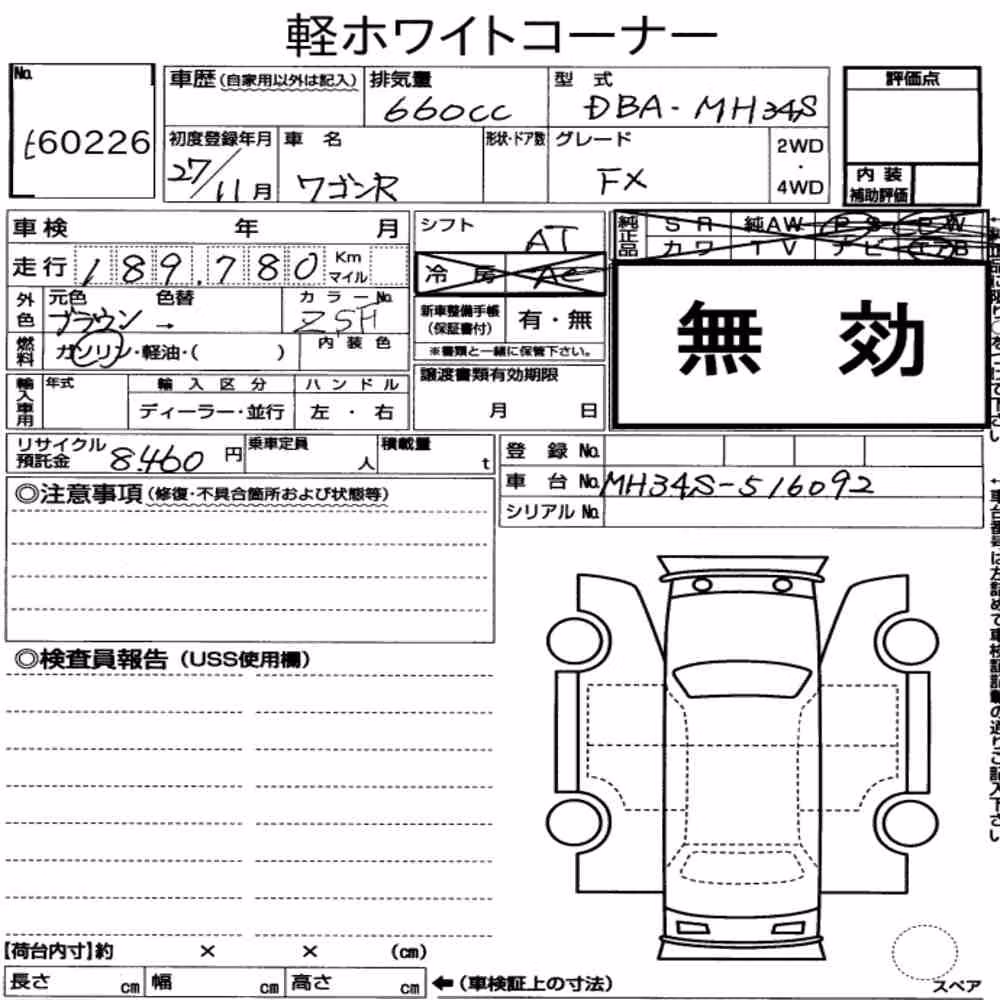 軽ホワイトコーナー
No.
60226
車歴(自家用以外は記入)
排気量
660cc
型 式
DBA-MH34S
評価点
初度登録年月
27/11月
車 名
ワゴンR
形状・ドア数
グレード
FX
2WD
・
4WD
内 装
補助評価
車検 年 月
シフト
AT
純正品
S R 純AW P S P W
カ ワ T V ナ ビ エアB
走行 189,780 Km
マイル
冷 房 AC
無 効
外色
元色 色替
ブラウン →
カ ラ ー No.
ZSH
新車整備手帳
(保証書付)
有・無
燃料
ガソリン・軽油・( )
内 装 色
※書類と一緒に保管下さい。
輸入車用
年式
輸 入 区 分
ハ ン ド ル
ディーラー・並行
左 ・ 右
譲渡書類有効期限
月 日
リサイクル
預託金
8460 円
乗車定員
人
積載量
t
登 録 No.
車 台 No.
MH34S-516092
シリアル No.
◎注意事項(修復・不具合箇所および状態等)
◎検査員報告(USS使用欄)
↑車台番号は左詰めで車検証記載の通りご記入下さい
【荷台内寸】約 × × (cm)
長さ cm 幅 cm 高さ cm
←(車検証上の寸法)
スペア